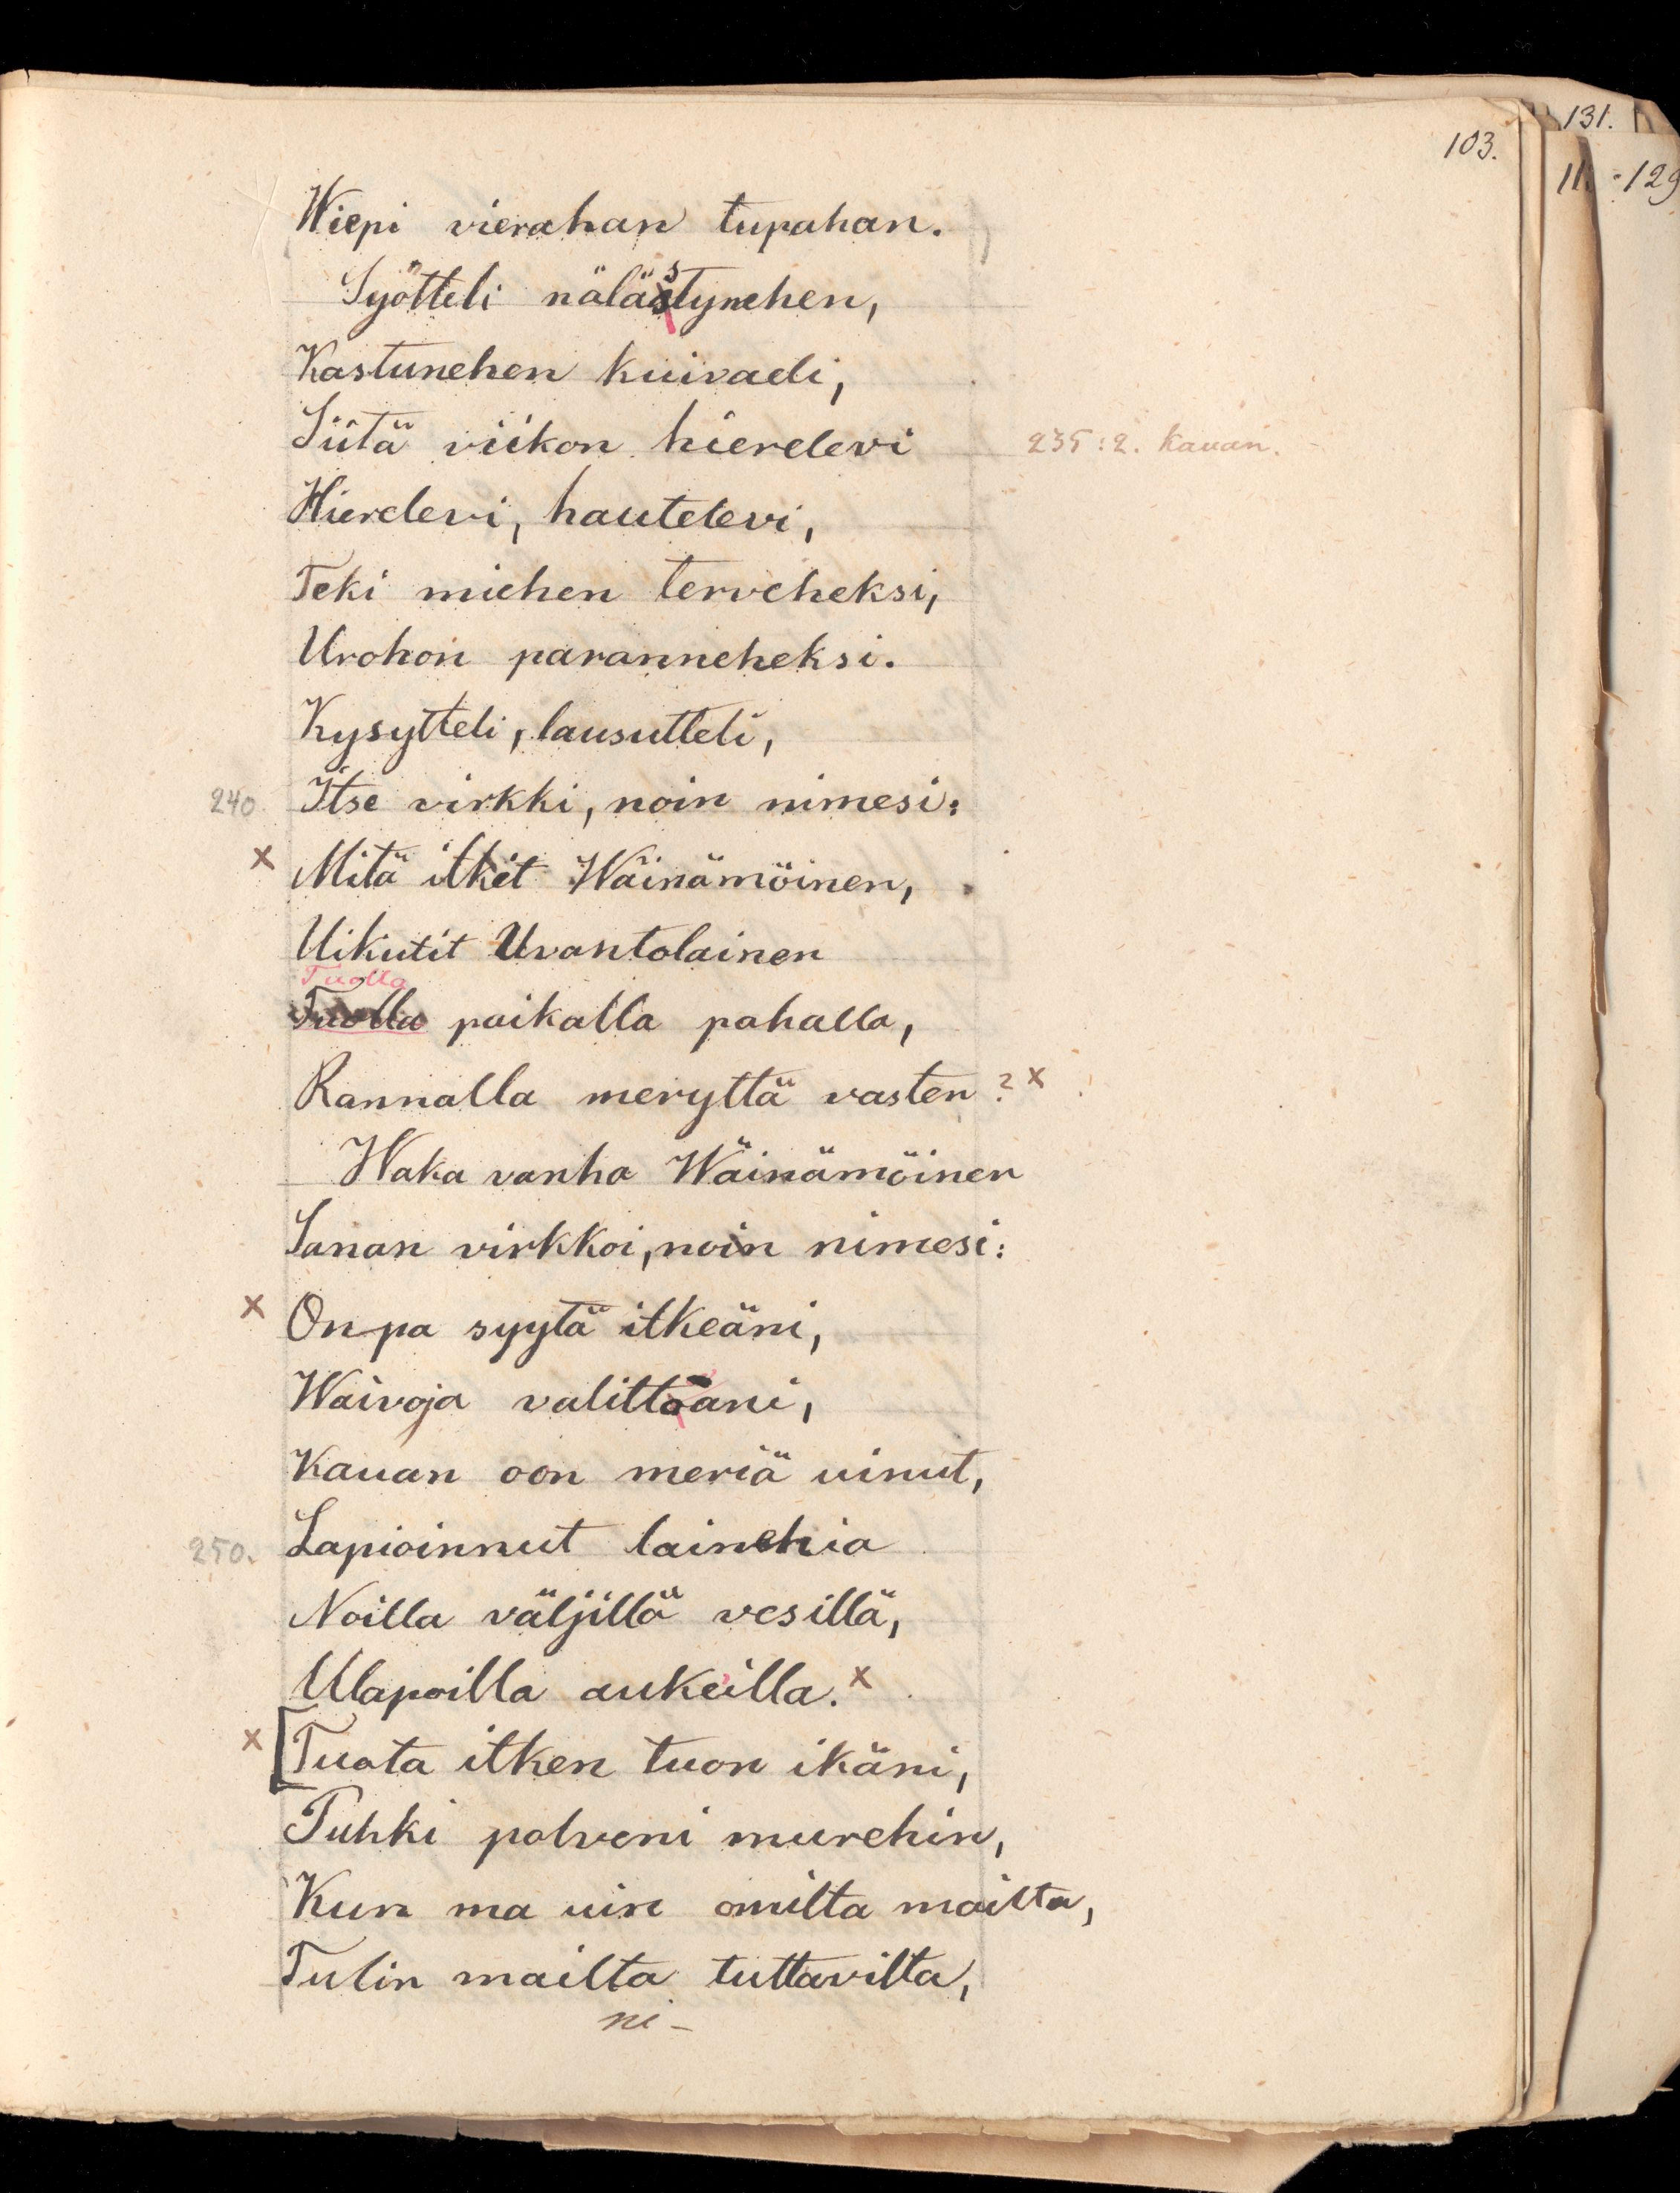 131.
103.
11. 129
Wiepi vierahan tupahan.
Syötteli nälästynehen,
Kastunehen kuivaeli,
Siitä viikon hierelevi
235:2. kauan.
Hierelevi, hautelevi,
Teki miehen terveheksi,
Urohon paranneheksi.
Kysytteli, lausutteli,
240. Itse virkki, noin nimesi:
x Mitä itket Wäinämöinen,
Uikutit Uvantolainen
Tuolla
Tuolla paikalla pahalla,
Rannalla meryttä vasten? x
Waka vanha Wäinämöinen
Sanan virkkoi, noin nimesi:
x On pa syytä itkeäni,
Waivoja valittoani,
Kauan oon meriä uinut,
250. Lapioinnut lainehia
Noilla väljillä vesillä,
Ulapoilla aukeilla. x
x [Tuota itken tuon ikäni,
Puhki polveni murehin,
Kun ma uin omilta mailta,
Tulin mailta tuttavilta,
ni-